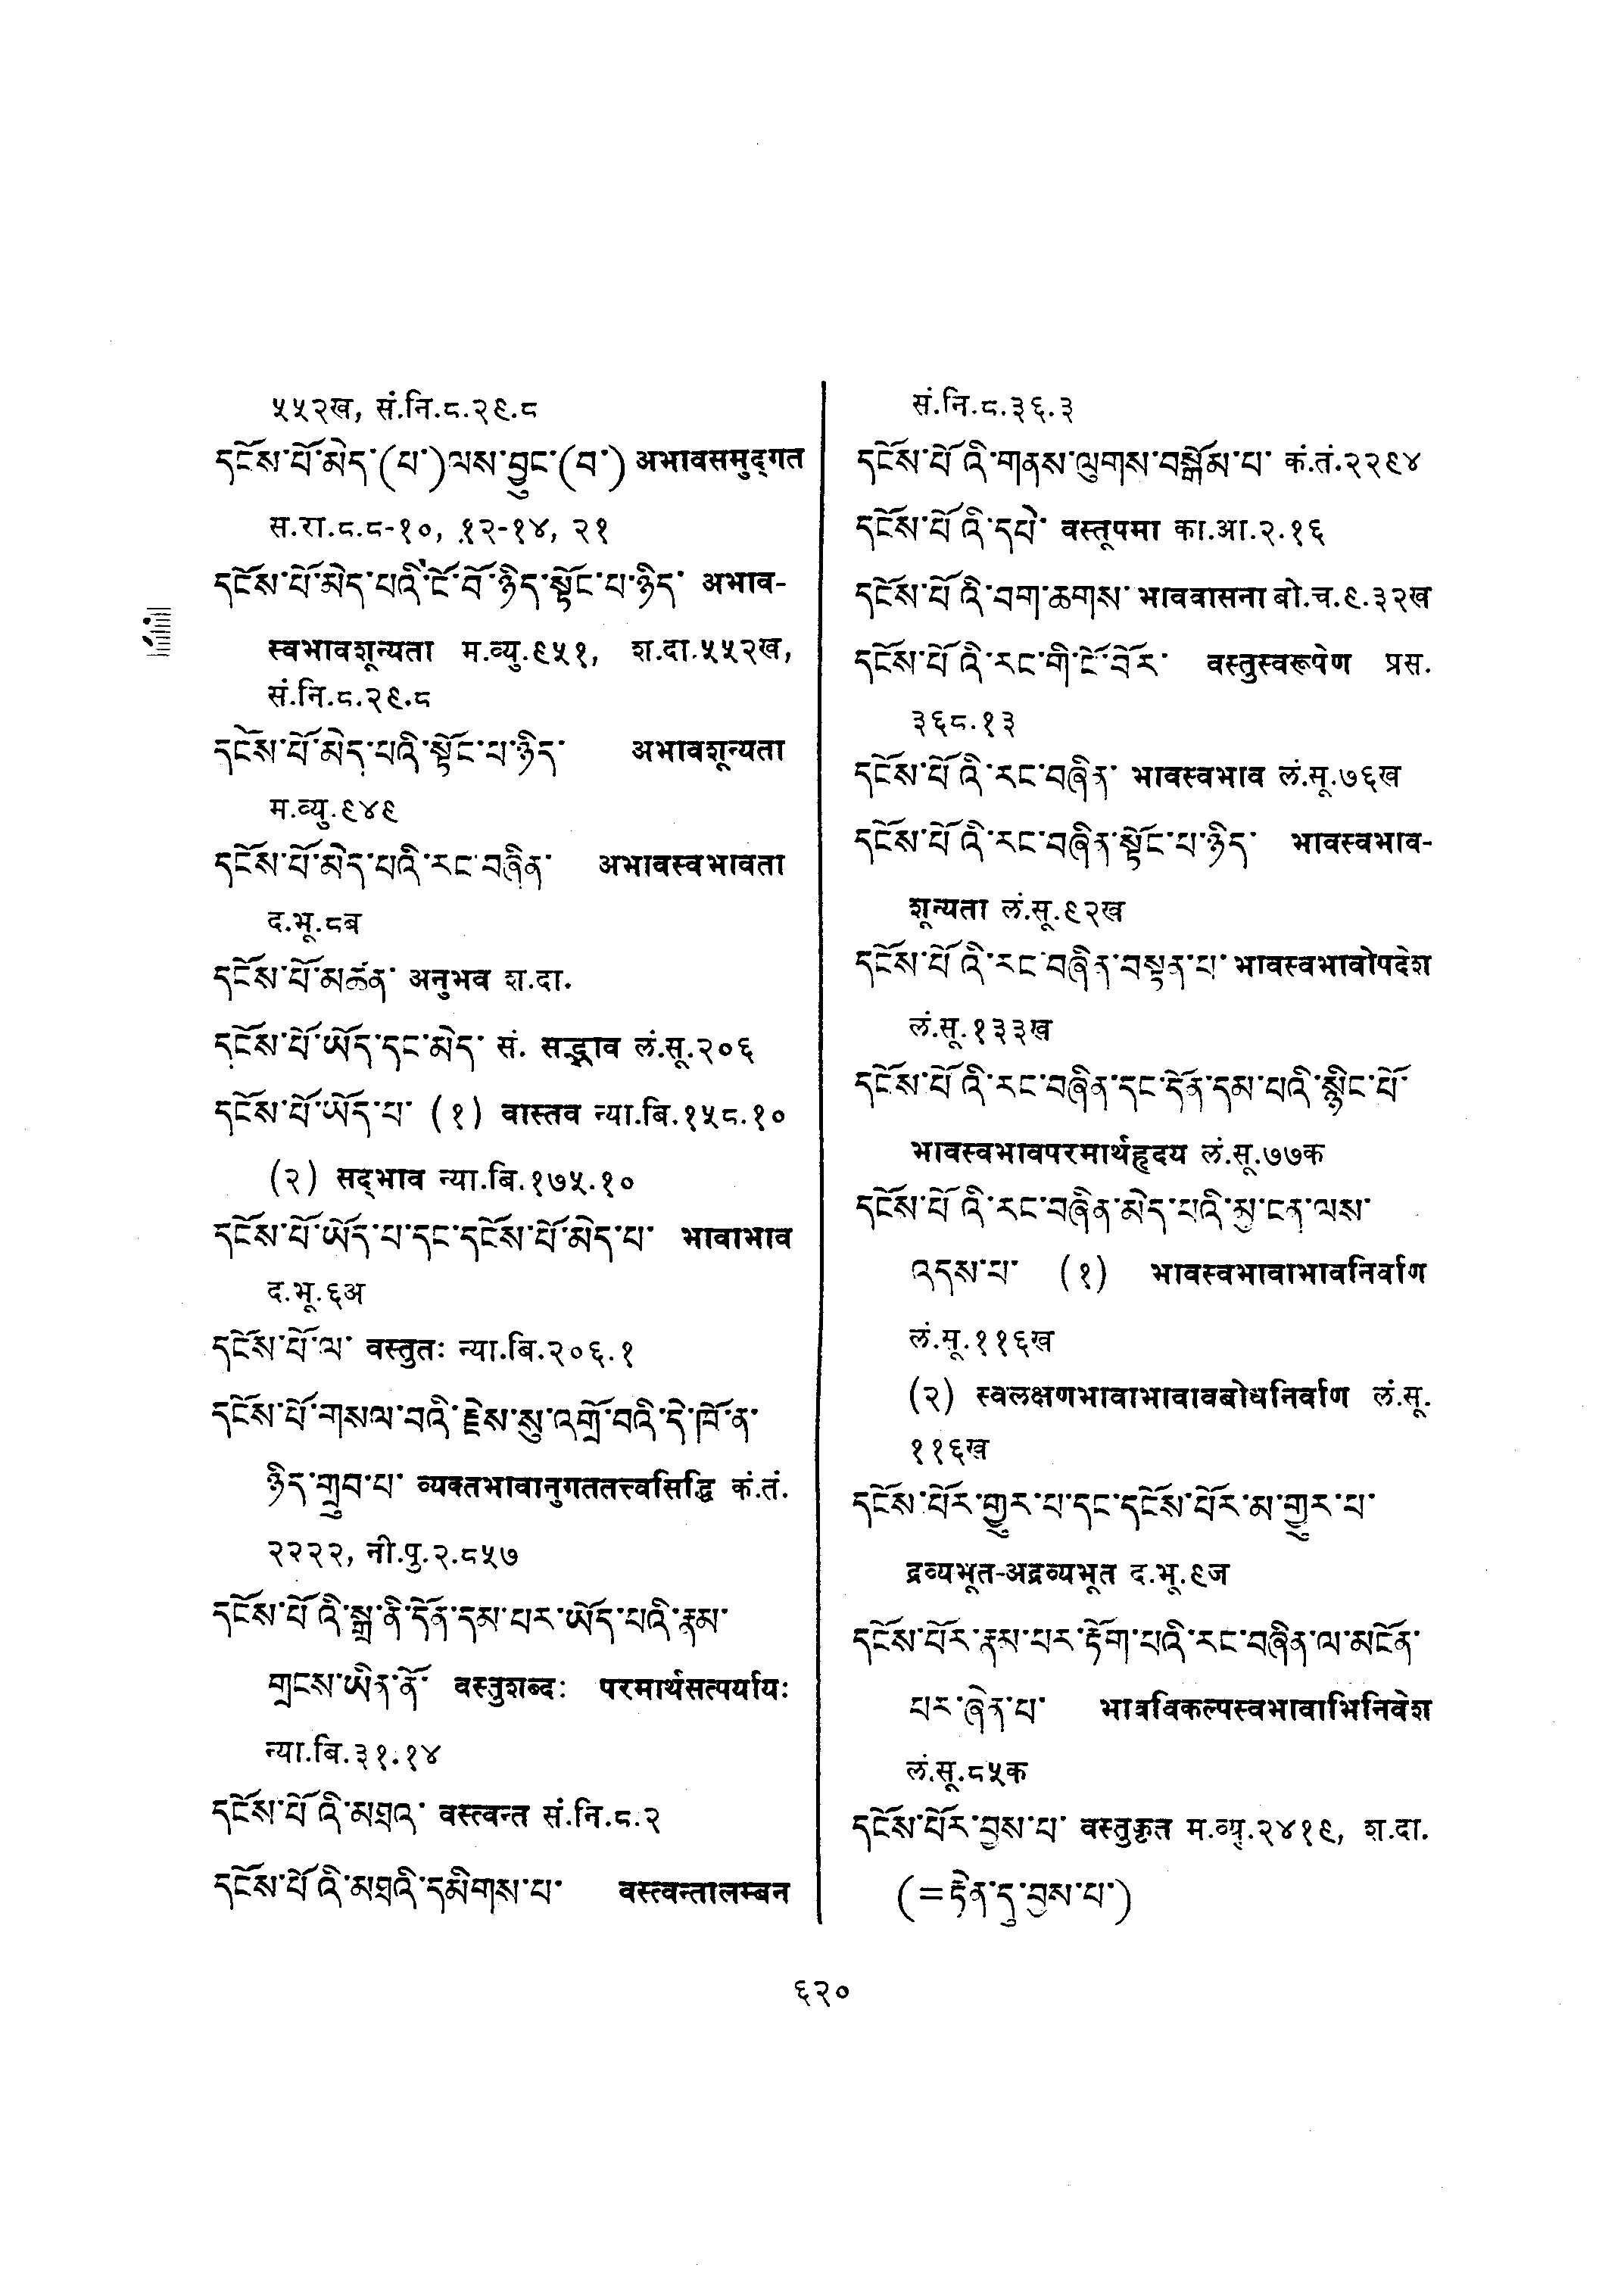 ५५२ख, सं.नि.८.२९.८
དངོས་པོ་མེད་(པ་)ལས་བྱུང་(བ་) अभावसमुद्गत
स.रा.८.८-१०, १२-१४, २१
དངོས་པོ་མེད་པའི་ངོ་བོ་ཉིད་སྟོང་པ་ཉིད་ अभाव-
स्वभावशून्यता म.व्यु.९५१, श.दा.५५२ख,
सं.नि.८.२९.८
དངོས་པོ་མེད་པའི་སྟོང་པ་ཉིད་ अभावशून्यता
म.व्यु.९४९
དངོས་པོ་མེད་པའི་རང་བཞིན་ अभावस्वभावता
द.भू.८ब
དངོས་པོ་མཚན་ अनुभव श.दा.
དངོས་པོ་ཡོད་དང་མེད་ सं. सद्भाव लं.सू.२०६
དངོས་པོ་ཡོད་པ་ (१) वास्तव न्या.बि.१५८.१०
(२) सद्भाव न्या.बि.१७५.१०
དངོས་པོ་ཡོད་པ་དང་དངོས་པོ་མེད་པ་ भावाभाव
द.भू.६अ
དངོས་པོ་ལ་ वस्तुतः न्या.बि.२०६.१
དངོས་པོ་གསལ་བའི་རྗེས་སུ་འགྲོ་བའི་དེ་ཁོ་ན་
ཉིད་གྲུབ་པ་ व्यक्तभावानुगततत्त्वसिद्धि कं.तं.
२२२२, नी.पु.२.८५७
དངོས་པོ་འི་སྒྲ་ནི་དོན་དམ་པར་ཡོད་པའི་རྣམ་
གྲངས་ཡིན་ནོ་ वस्तुशब्दः परमार्थसत्पर्यायः
न्या.बि.३१.१४
དངོས་པོ་འི་མཐའ་ वस्त्वन्त सं.नि.८.२
དངོས་པོ་འི་མཐའི་དམིགས་པ་ वस्त्वन्तालम्बन
सं.नि.८.३६.३
དངོས་པོ་འི་གནས་ལུགས་བསྒོམ་པ་ कं.तं.२२९४
དངོས་པོ་འི་དཔེ་ वस्तूपमा का.आ.२.१६
དངོས་པོ་འི་བག་ཆགས་ भाववासना बो.च.९.३२ख
དངོས་པོ་འི་རང་གི་ངོ་བོར་ वस्तुस्वरूपेण प्रस.
३६८.१३
དངོས་པོ་འི་རང་བཞིན་ भावस्वभाव लं.सू.७६ख
དངོས་པོ་འི་རང་བཞིན་སྟོང་པ་ཉིད་ भावस्वभाव-
शून्यता लं.सू.९२ख
དངོས་པོ་འི་རང་བཞིན་བསྟན་པ་ भावस्वभावोपदेश
लं.सू.१३३ख
དངོས་པོ་འི་རང་བཞིན་དང་དོན་དམ་པའི་སྙིང་པོ་
भावस्वभावपरमार्थहृदय लं.सू.७७क
དངོས་པོ་འི་རང་བཞིན་མེད་པའི་མྱ་ངན་ལས་
འདས་པ་ (१) भावस्वभावाभावनिर्वाण
लं.सू.११६ख
(२) स्वलक्षणभावाभावावबोधनिर्वाण लं.सू.
११६ख
དངོས་པོར་གྱུར་པ་དང་དངོས་པོར་མ་གྱུར་པ་
द्रव्यभूत-अद्रव्यभूत द.भू.९ज
དངོས་པོར་རྣམ་པར་རྟོག་པའི་རང་བཞིན་ལ་མངོན་
པར་ཞེན་པ་ भावविकल्पस्वभावाभिनिवेश
लं.सू.८५क
དངོས་པོར་བྱས་པ་ वस्तुकृत म.व्यु.२४१९, श.दा.
(=རྟེན་དུ་བྱས་པ་)
६२०